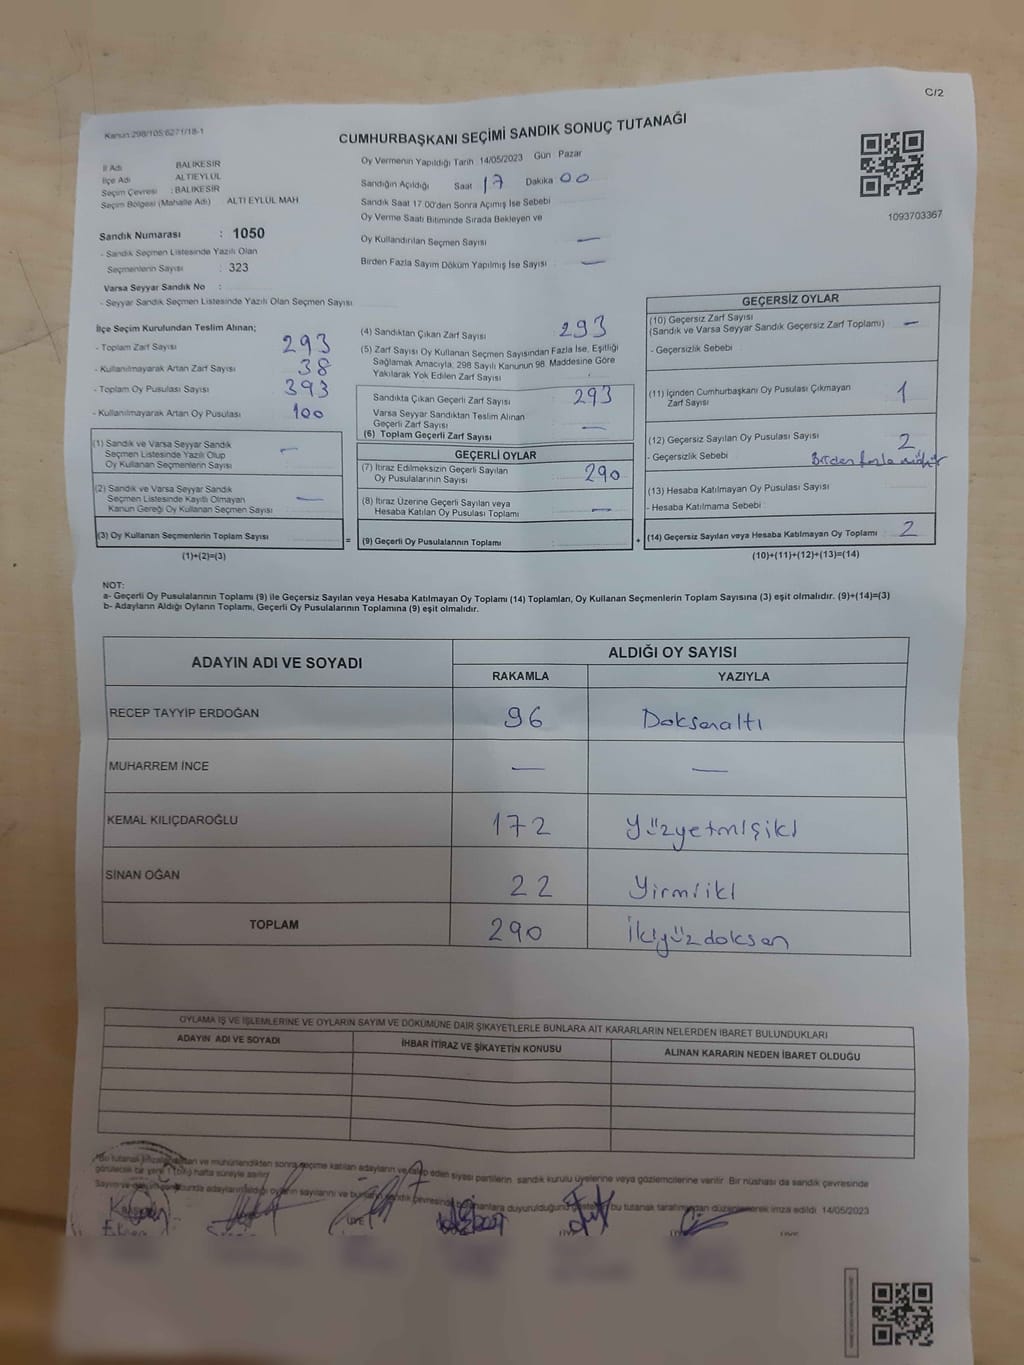 C/2
Kanun:298/105;6271/18-1
CUMHURBAŞKANI SEÇİMİ SANDIK SONUÇ TUTANAĞI
İl Adı BALIKESİR
İlçe Adı ALTIEYLÜL
Seçim Çevresi : BALIKESİR
Seçim Bölgesi (Mahalle Adı) ALTI EYLÜL MAH
Sandık Numarası : 1050
- Sandık Seçmen Listesinde Yazılı Olan
Seçmenlerin Sayısı : 323
Varsa Seyyar Sandık No :
- Seyyar Sandık Seçmen Listesinde Yazılı Olan Seçmen Sayısı
Oy Vermenin Yapıldığı Tarih 14/05/2023 Gün Pazar
Sandığın Açıldığı Saat 17 Dakika 00
Sandık Saat 17.00'den Sonra Açımış İse Sebebi
Oy Verme Saati Bitiminde Sırada Bekleyen ve
Oy Kullandırılan Seçmen Sayısı —
Birden Fazla Sayım Döküm Yapılmış İse Sayısı —
1093703367
İlçe Seçim Kurulundan Teslim Alınan;
- Toplam Zarf Sayısı 293
- Kullanılmayarak Artan Zarf Sayısı 38
- Toplam Oy Pusulası Sayısı 393
- Kullanılmayarak Artan Oy Pusulası 100
(1) Sandık ve Varsa Seyyar Sandık
Seçmen Listesinde Yazılı Olup
Oy Kullanan Seçmenlerin Sayısı —
(2) Sandık ve Varsa Seyyar Sandık
Seçmen Listesinde Kayıtlı Olmayan
Kanun Gereği Oy Kullanan Seçmen Sayısı —
(3) Oy Kullanan Seçmenlerin Toplam Sayısı
(1)+(2)=(3)
=
(4) Sandıktan Çıkan Zarf Sayısı 293
(5) Zarf Sayısı Oy Kullanan Seçmen Sayısından Fazla İse, Eşitliği
Sağlamak Amacıyla, 298 Sayılı Kanunun 98. Maddesine Göre
Yakılarak Yok Edilen Zarf Sayısı
Sandıkta Çıkan Geçerli Zarf Sayısı 293
Varsa Seyyar Sandıktan Teslim Alınan
Geçerli Zarf Sayısı —
(6) Toplam Geçerli Zarf Sayısı
GEÇERLİ OYLAR
(7) İtiraz Edilmeksizin Geçerli Sayılan
Oy Pusulalarının Sayısı 290
(8) İtiraz Üzerine Geçerli Sayılan veya
Hesaba Katılan Oy Pusulası Toplamı —
(9) Geçerli Oy Pusulalarının Toplamı
+
GEÇERSİZ OYLAR
(10) Geçersiz Zarf Sayısı
(Sandık ve Varsa Seyyar Sandık Geçersiz Zarf Toplamı) —
- Geçersizlik Sebebi
(11) İçinden Cumhurbaşkanı Oy Pusulası Çıkmayan
Zarf Sayısı 1
(12) Geçersiz Sayılan Oy Pusulası Sayısı 2
- Geçersizlik Sebebi Birden fazla mühür
(13) Hesaba Katılmayan Oy Pusulası Sayısı
- Hesaba Katılmama Sebebi
(14) Geçersiz Sayılan veya Hesaba Katılmayan Oy Toplamı 2
(10)+(11)+(12)+(13)=(14)
NOT:
a- Geçerli Oy Pusulalarının Toplamı (9) ile Geçersiz Sayılan veya Hesaba Katılmayan Oy Toplamı (14) Toplamları, Oy Kullanan Seçmenlerin Toplam Sayısına (3) eşit olmalıdır. (9)+(14)=(3)
b- Adayların Aldığı Oyların Toplamı, Geçerli Oy Pusulalarının Toplamına (9) eşit olmalıdır.
ADAYIN ADI VE SOYADI ALDIĞI OY SAYISI
RAKAMLA YAZIYLA
RECEP TAYYİP ERDOĞAN 96 Doksanaltı
MUHARREM İNCE — —
KEMAL KILIÇDAROĞLU 172 Yüzyetmişiki
SİNAN OĞAN 22 Yirmiiki
TOPLAM 290 İkiyüzdoksan
OYLAMA İŞ VE İŞLEMLERİNE VE OYLARIN SAYIM VE DÖKÜMÜNE DAİR ŞİKAYETLERLE BUNLARA AİT KARARLARIN NELERDEN İBARET BULUNDUKLARI
ADAYIN ADI VE SOYADI İHBAR İTİRAZ VE ŞİKAYETİN KONUSU ALINAN KARARIN NEDEN İBARET OLDUĞU
"Bu tutanak ve mühürlendikten sonra seçime katılan adayların ve talep eden siyasi partilerin sandık kurulu üyelerine veya gözlemcilerine verilir. Bir nüshası da sandık çevresinde
görülecek bir yere 1 (bir) hafta süreyle asılır.
Sayım ve adayların aldığı oyların sayılarını ve sandık çevresinde duyurulduğunu bu tutanak tarafımızdan düzenlenerek imza edildi. 14/05/2023
BAŞKAN
ÜYE